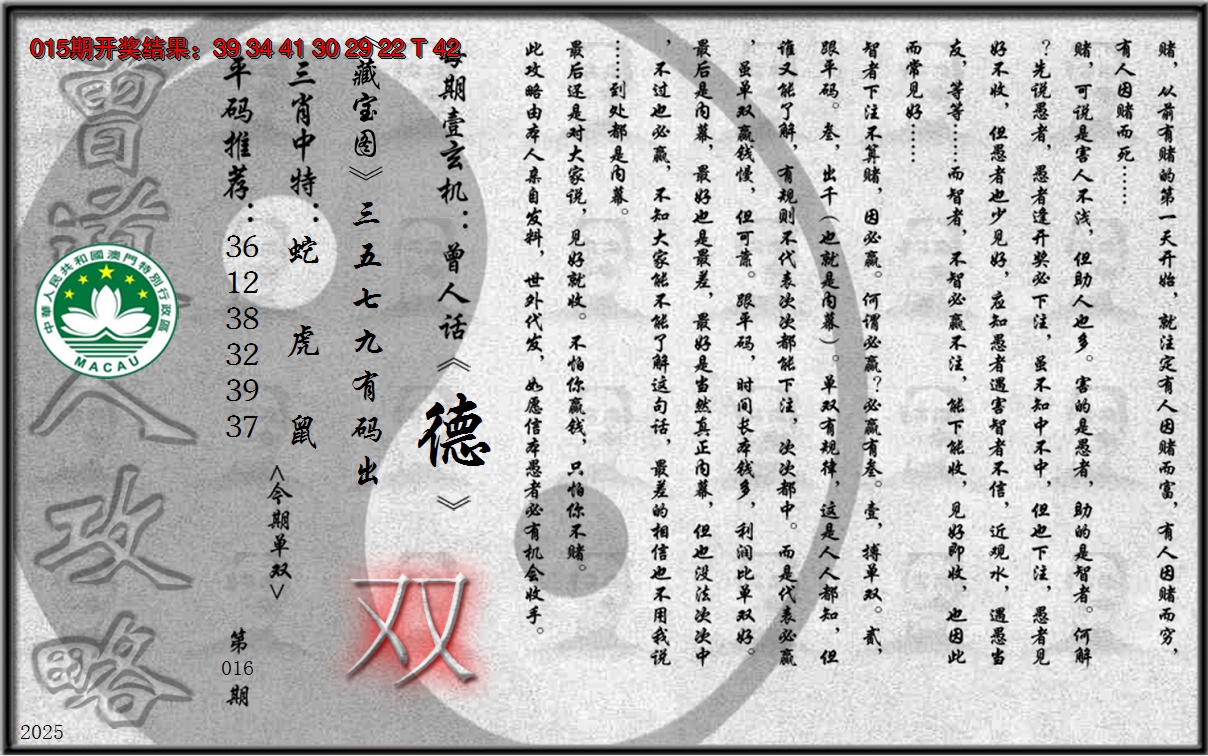 015期开奖结果：39 34 41 30 29 22 T 42
赌，从前有赌的第一天开始，就注定有人因赌而富，有人因赌而穷，
有人因赌而死……
赌，可说是害人不浅，但助人也多。害的是愚者，助的是智者。何解
？先说愚者，愚者逢开奖必下注，虽不知中不中，但也下注，愚者见
好不收，但愚者也少见好，应知愚者遇害智者不信，近观水，遇愚当
友，等等……而智者，不智必赢不注，能下能收，见好即收，也因此
而常见好……
智者下注不算赌，因必赢。何谓必赢？必赢有叁。壹，搏单双。贰，
跟平码。叁，出千（也就是内幕）。单双有规律，这是人人都知，但
谁又能了解，有规则不代表次次都能下注，次次都中。而是代表必赢
，虽单双赢钱慢，但可靠。跟平码，时间长本钱多，利润比单双好。
最后是内幕，最好也是最差，最好是当然真正内幕，但也没法次次中
，不过也必赢，不知大家能不能了解这句话，最差的相信也不用我说
……到处都是内幕。
最后还是对大家说，见好就收。不怕你赢钱，只怕你不赌。
此攻略由本人亲自发料，世外代发，如愿信本愚者必有机会收手。
每期壹玄机：曾人话《德》
《藏宝图》三五七九有码出
双
三肖中特：蛇 虎 鼠
<今期单双>
平码推荐：36 12 38 32 39 37
第016期
曾道人攻略
中華人民共和國澳門特別行政區
MACAU
2025